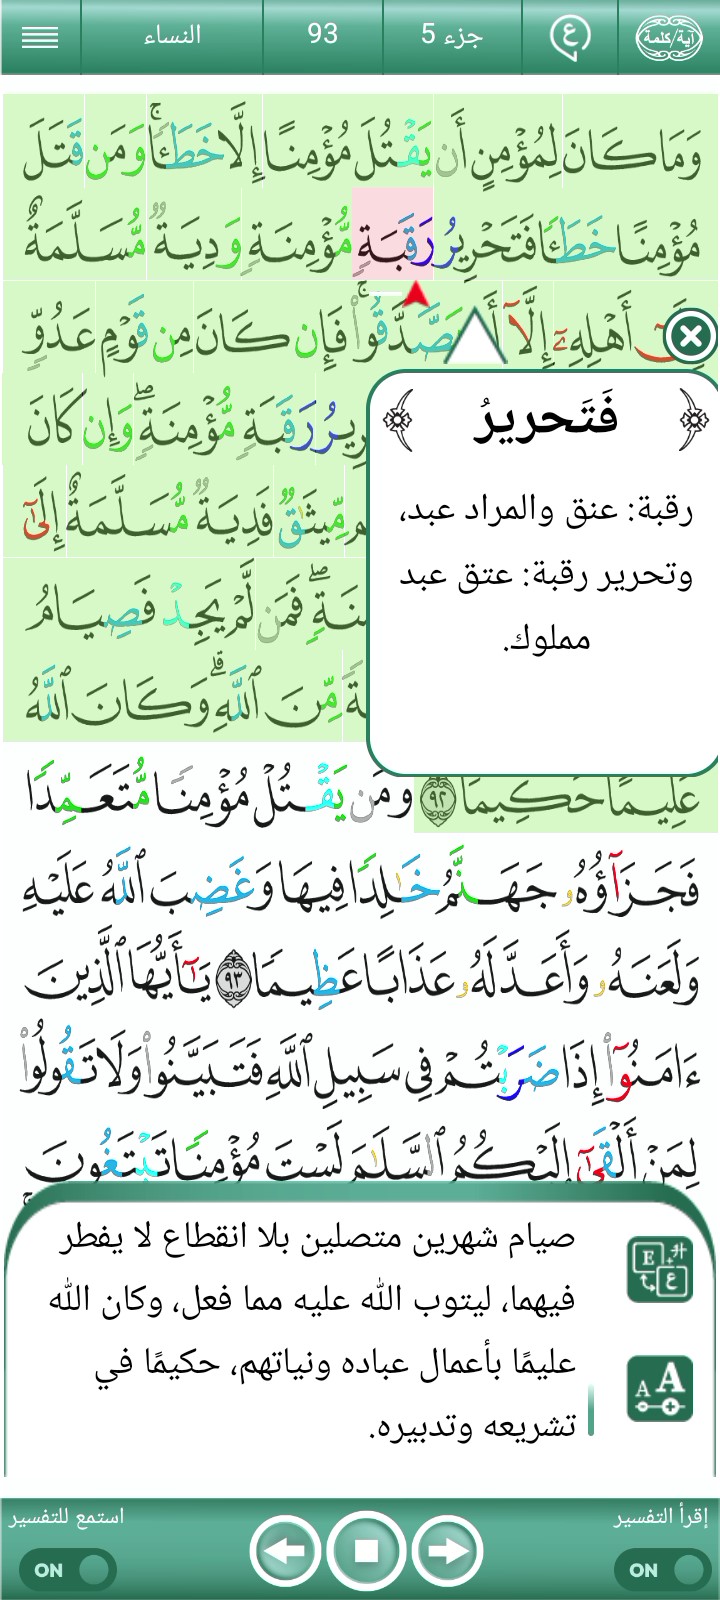 آية/كلمة
ع
جزء 5
93
النساء
وَمَا كَانَ لِمُؤْمِنٍ أَن يَقْتُلَ مُؤْمِنًا إِلَّا خَطَـًٔا ۚ وَمَن قَتَلَ
مُؤْمِنًا خَطَـًٔا فَتَحْرِيرُ رَقَبَةٍ مُّؤْمِنَةٍ وَدِيَةٌ مُّسَلَّمَةٌ
أَهْلِهِۦٓ إِلَّآ يَصَّدَّقُوا۟ ۚ فَإِن كَانَ مِن قَوْمٍ عَدُوٍّ
رَقَبَةٍ مُّؤْمِنَةٍ ۖ وَإِن كَانَ
مِّيثَـٰقٌ فَدِيَةٌ مُّسَلَّمَةٌ إِلَىٰٓ
فَمَن لَّمْ يَجِدْ فَصِيَامُ
مِّنَ ٱللَّهِ ۗ وَكَانَ ٱللَّهُ
عَلِيمًا حَكِيمًا ٩٢ وَمَن يَقْتُلْ مُؤْمِنًا مُّتَعَمِّدًا
فَجَزَآؤُهُۥ جَهَنَّمُ خَـٰلِدًا فِيهَا وَغَضِبَ ٱللَّهُ عَلَيْهِ
وَلَعَنَهُۥ وَأَعَدَّ لَهُۥ عَذَابًا عَظِيمًا ٩٣ يَـٰٓأَيُّهَا ٱلَّذِينَ
ءَامَنُوٓا۟ إِذَا ضَرَبْتُمْ فِى سَبِيلِ ٱللَّهِ فَتَبَيَّنُوا۟ وَلَا تَقُولُوا۟
لِمَنْ أَلْقَىٰٓ إِلَيْكُمُ ٱلسَّلَـٰمَ لَسْتَ مُؤْمِنًا تَبْتَغُونَ
فَتَحريرُ
رقبة: عنق والمراد عبد،
وتحرير رقبة: عتق عبد
مملوك.
صيام شهرين متصلين بلا انقطاع لا يفطر
فيهما، ليتوب الله عليه مما فعل، وكان الله
عليمًا بأعمال عباده ونياتهم، حكيمًا في
تشريعه وتدبيره.
إقرأ التفسير
ON
استمع للتفسير
ON